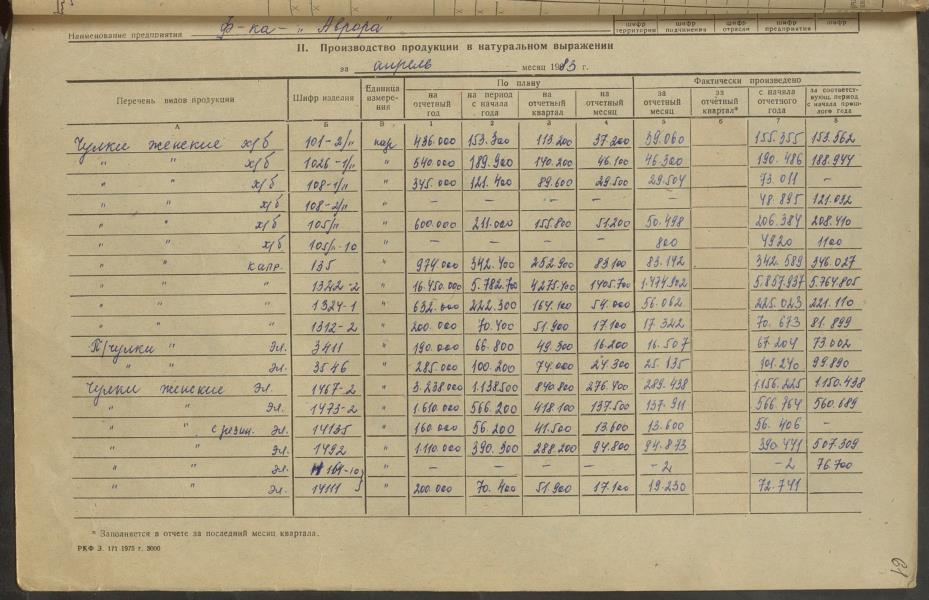 Наименование предприятия Ф-ка- „Аврора"
шифр территории шифр подчинения шифр отрасли шифр предприятия шифр
II. Производство продукции в натуральном выражении
за апрель месяц 1983 г.
Перечень видов продукции Шифр изделия Единица измерения По плану Фактически произведено
на отчетный год на период с начала года на отчетный квартал на отчетный месяц за отчетный месяц за отчётный квартал* с начала отчетного года за соответствующ. период с начала прошлого года
А Б В 1 2 3 4 5 6 7 8
Чулки женские х/б 101-2/11 пар 436.000 153.300 113.200 37.200 39.060 155.355 153.562
" " х/б 1026-1/11 " 540.000 189.900 140.200 46.100 46.300 190.486 188.944
" " х/б 108-1/11 " 345.000 121.400 89.600 29.500 29.504 73.011 –
" " х/б 108-2/11 " – – – – – 48.895 121.032
" " х/б 105/11 " 600.000 211.000 155.800 51.200 50.498 206.384 208.410
" " х/б 105/11-10 " – – – – 800 4920 1100
" " капр. 135 " 974.000 342.400 252.900 83.100 83.142 342.589 346.027
" " " 1322-2 " 16.450.000 5.782.700 4275.400 1405.700 1.474.902 5.857.937 5.764.805
" " " 1324-1 " 632.000 222.300 164.100 54.000 56.062 225.023 221.110
" " " 1312-2 " 200.000 70.400 51.900 17.100 17.342 70.673 81.899
П/чулки " эл. 3411 " 190.000 66.800 49.300 16.200 16.507 67.204 73.002
" " эл. 3546 " 285.000 100.200 74.000 24.300 25.135 101.240 99.890
Чулки женские эл. 1467-2 " 3.238.000 1.138500 840.800 276.400 289.438 1.156.225 1.150.438
" " эл. 1473-2 " 1.610.000 566.200 418.100 137.500 137.911 566.764 560.689
" " с резин. эл. 14135 " 160.000 56.200 41.500 13.600 13.600 56.406 –
" " эл. 1492 " 1.110.000 390.300 288.200 94.800 94.873 390.441 507.309
" " эл. " – – – – -2 -2 76.700
" " эл. 14111 " 200.000 70.400 51.900 17.100 19.230 72.741
* Заполняется в отчете за последний месяц квартала.
РКФ З. 171 1975 г. 3000
61